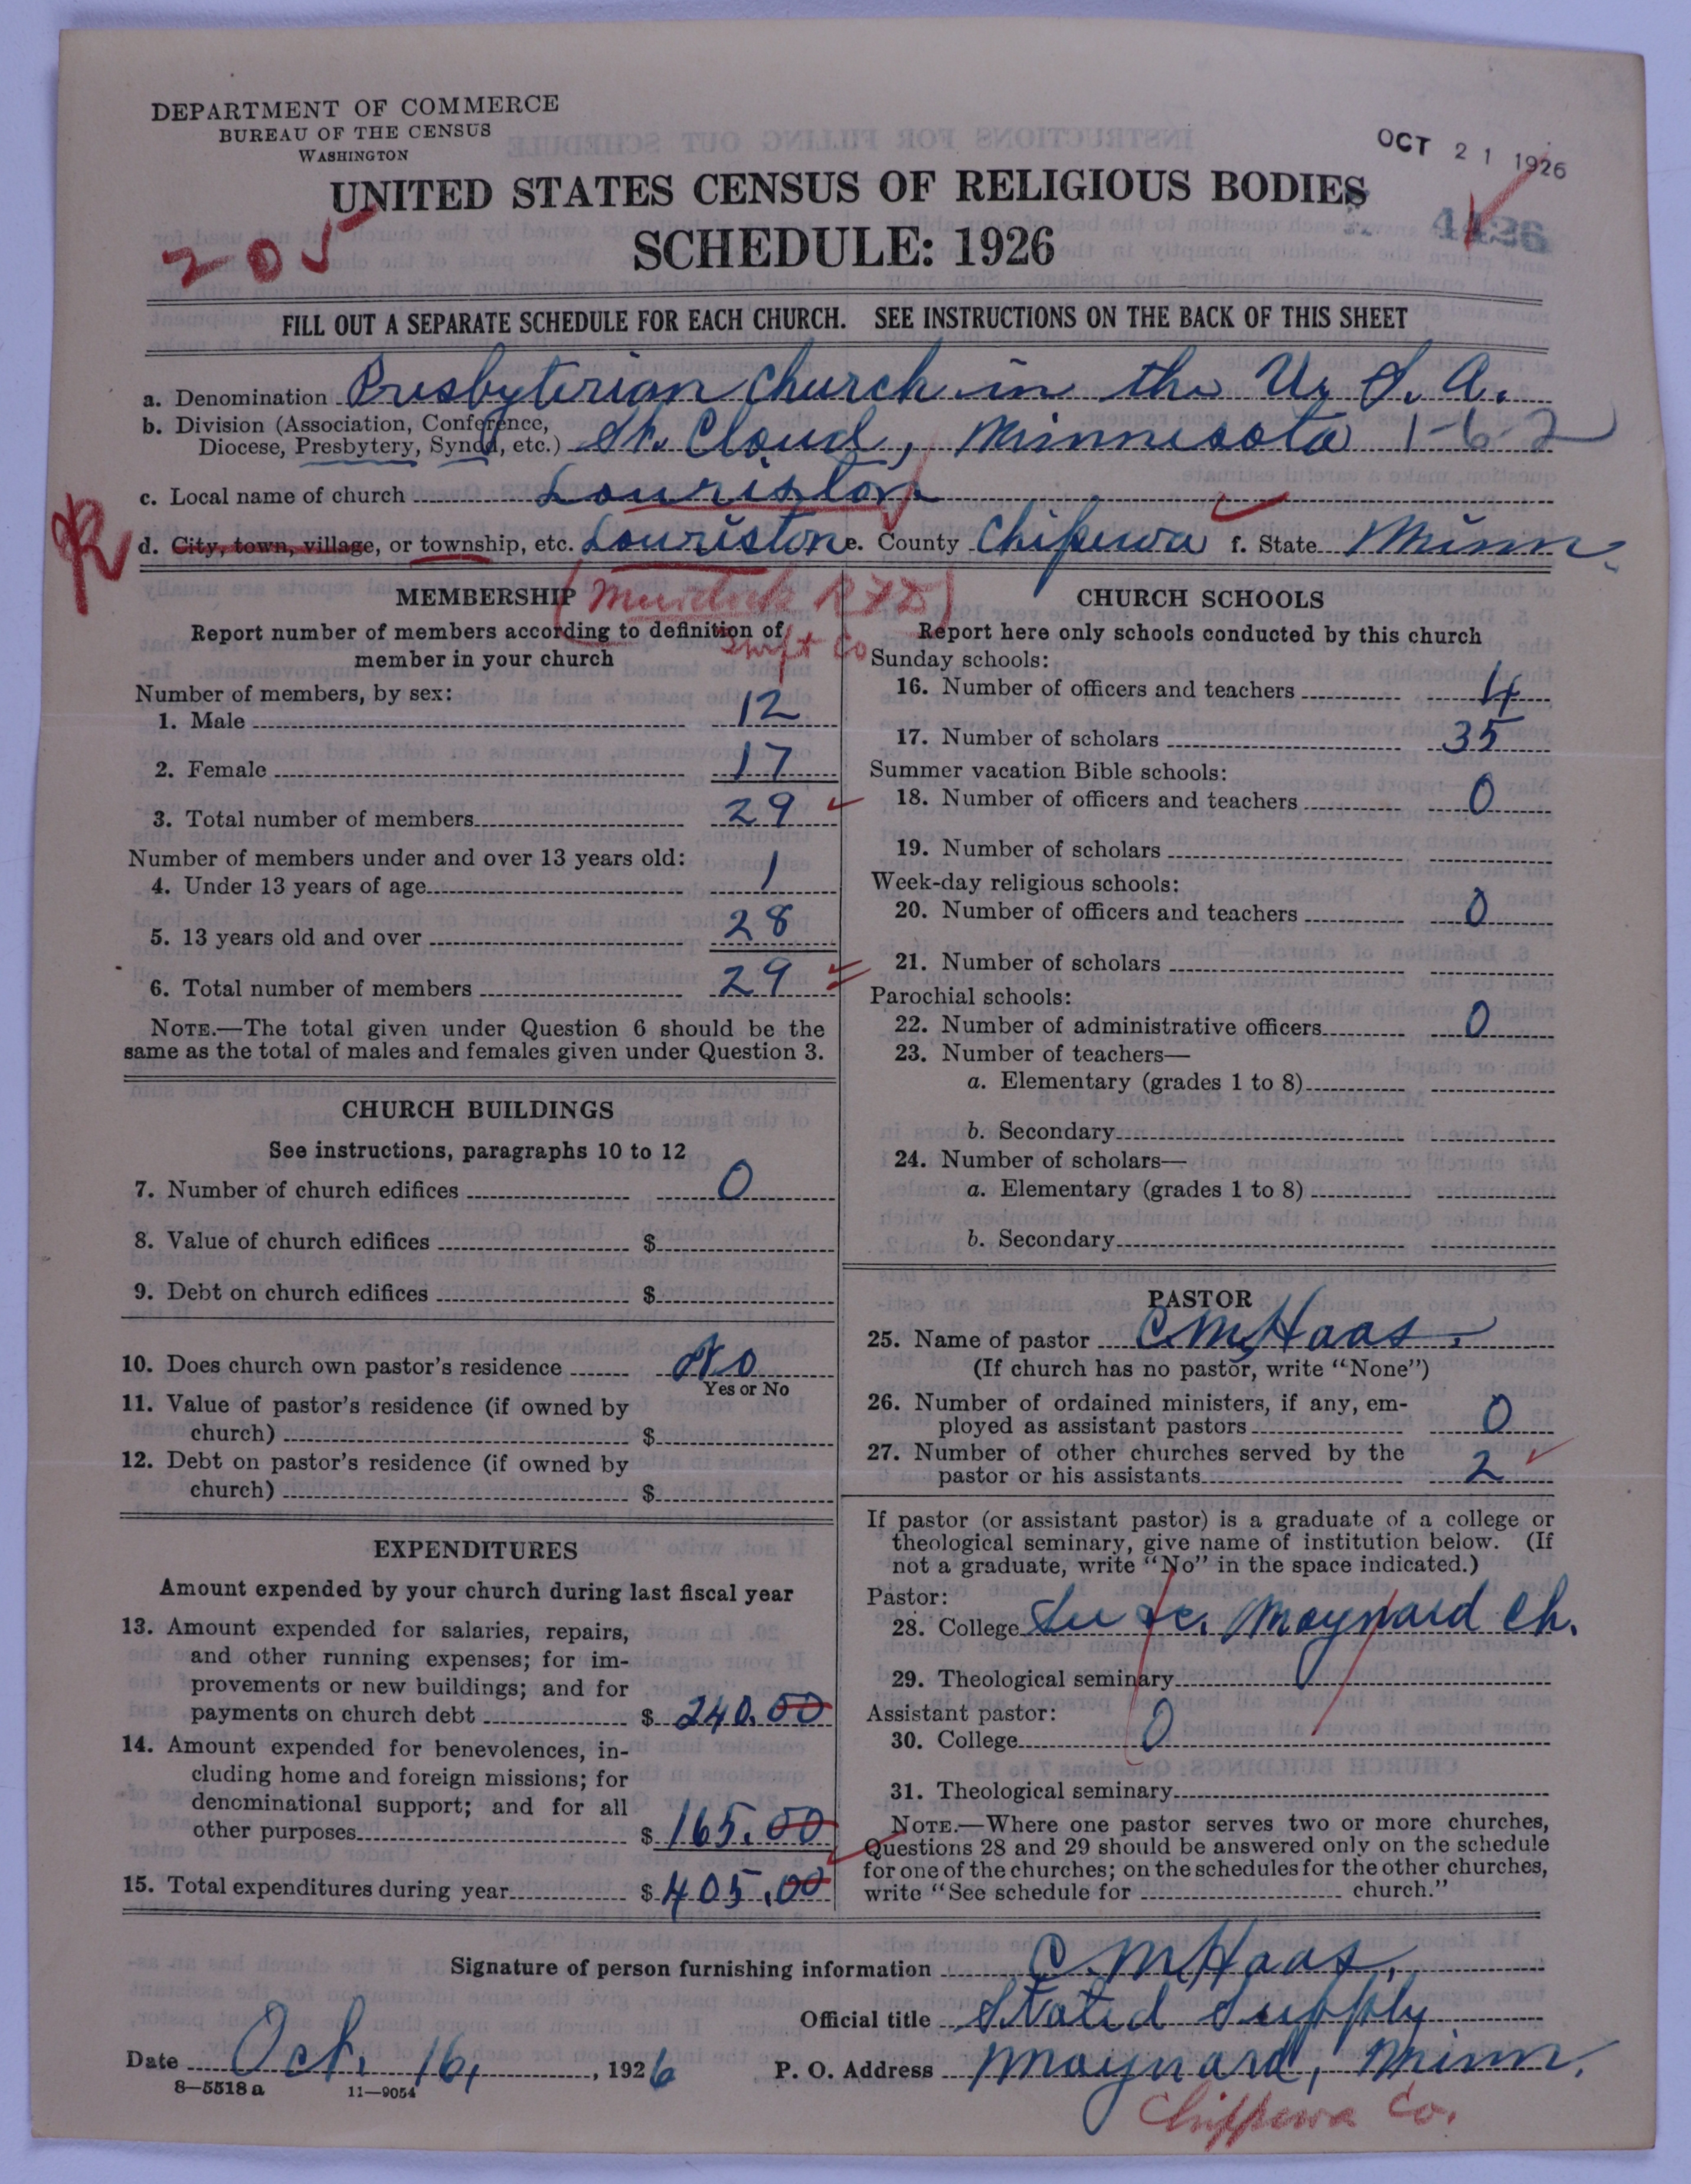 DEPARTMENT OF COMMERCE
BUREAU OF THE CENSUS
WASHINGTON
OCT 21 1926
UNITED STATES CENSUS OF RELIGIOUS BODIES
205
4426
SCHEDULE: 1926
FILL OUT A SEPARATE SCHEDULE FOR EACH CHURCH. SEE INSTRUCTIONS ON THE BACK OF THIS SHEET
a. Denomination Presbyterian Church in the U. S. A.
b. Division (Association, Conference,
Diocese, Presbytery, Synod, etc.) St. Cloud, Minnesota 1-6-2
c. Local name of church Louriston
R
d. City, town, village, or township, etc. Louriston e. County Chipewa f. State Minn.
(Murdock RFD)
Swift Co
MEMBERSHIP
Report number of members according to definition of
member in your church
Number of members, by sex:
1. Male 12
2. Female 17
3. Total number of members 29
Number of members under and over 13 years old:
4. Under 13 years of age 1
5. 13 years old and over 28
6. Total number of members 29
NOTE.—The total given under Question 6 should be the
same as the total of males and females given under Question 3.
CHURCH BUILDINGS
See instructions, paragraphs 10 to 12
7. Number of church edifices 0
8. Value of church edifices $
9. Debt on church edifices $
10. Does church own pastor's residence No
Yes or No
11. Value of pastor's residence (if owned by
church) $
12. Debt on pastor's residence (if owned by
church) $
EXPENDITURES
Amount expended by your church during last fiscal year
13. Amount expended for salaries, repairs,
and other running expenses; for im-
provements or new buildings; and for
payments on church debt $ 240.00
14. Amount expended for benevolences, in-
cluding home and foreign missions; for
denominational support; and for all
other purposes $ 165.00
15. Total expenditures during year $ 405.00
CHURCH SCHOOLS
Report here only schools conducted by this church
Sunday schools:
16. Number of officers and teachers 4
17. Number of scholars 35
Summer vacation Bible schools:
18. Number of officers and teachers 0
19. Number of scholars
Week-day religious schools:
20. Number of officers and teachers 0
21. Number of scholars
Parochial schools:
22. Number of administrative officers 0
23. Number of teachers—
a. Elementary (grades 1 to 8)
b. Secondary
24. Number of scholars—
a. Elementary (grades 1 to 8)
b. Secondary
PASTOR
25. Name of pastor C. M. Haas.
(If church has no pastor, write "None")
26. Number of ordained ministers, if any, em-
ployed as assistant pastors 0
27. Number of other churches served by the
pastor or his assistants 2
If pastor (or assistant pastor) is a graduate of a college or
theological seminary, give name of institution below. (If
not a graduate, write "No" in the space indicated.)
Pastor:
28. College Maynard Ch.
29. Theological seminary
Assistant pastor:
30. College 0
31. Theological seminary
NOTE.—Where one pastor serves two or more churches,
Questions 28 and 29 should be answered only on the schedule
for one of the churches; on the schedules for the other churches,
write "See schedule for church."
Signature of person furnishing information C. M. Haas.
Official title Stated Supply
Date Oct. 16, 1926 P. O. Address Maynard, Minn.
8-5518a 11-9054
Chippewa Co.